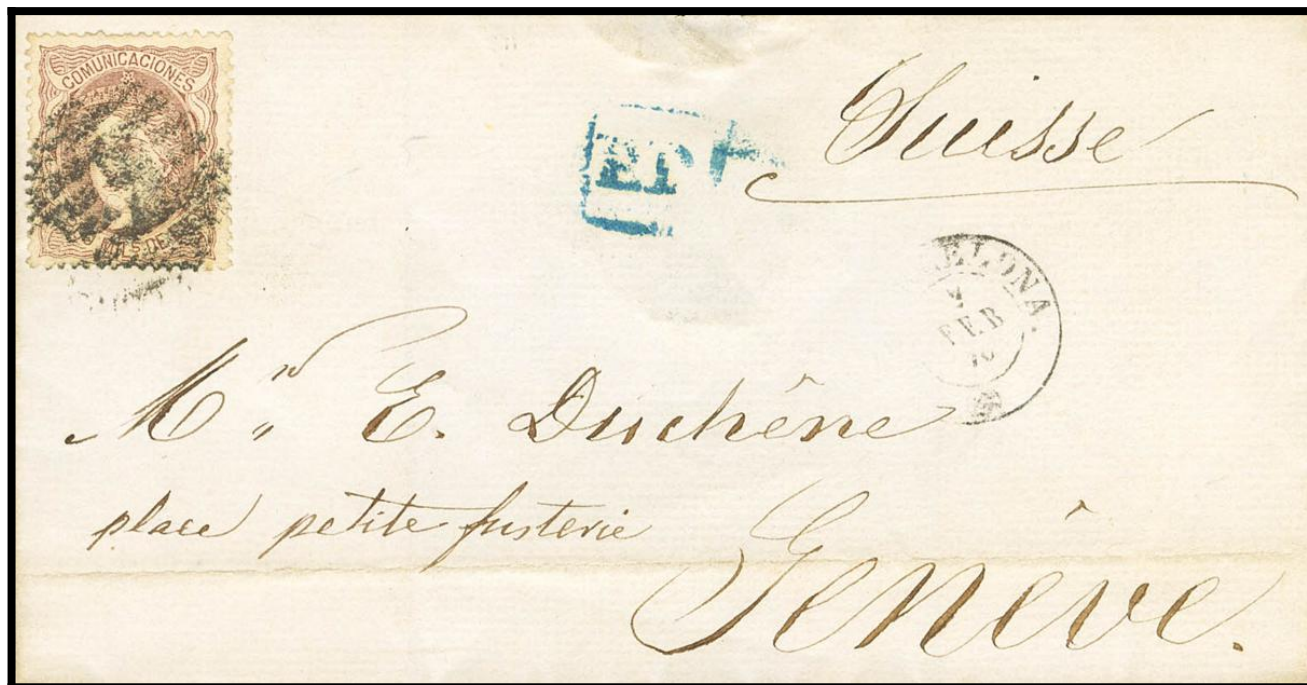 COMUNICACIONES
Suisse
ELONA.
FEB
Mr E. Duchêne
place petite fusterie
Genève.